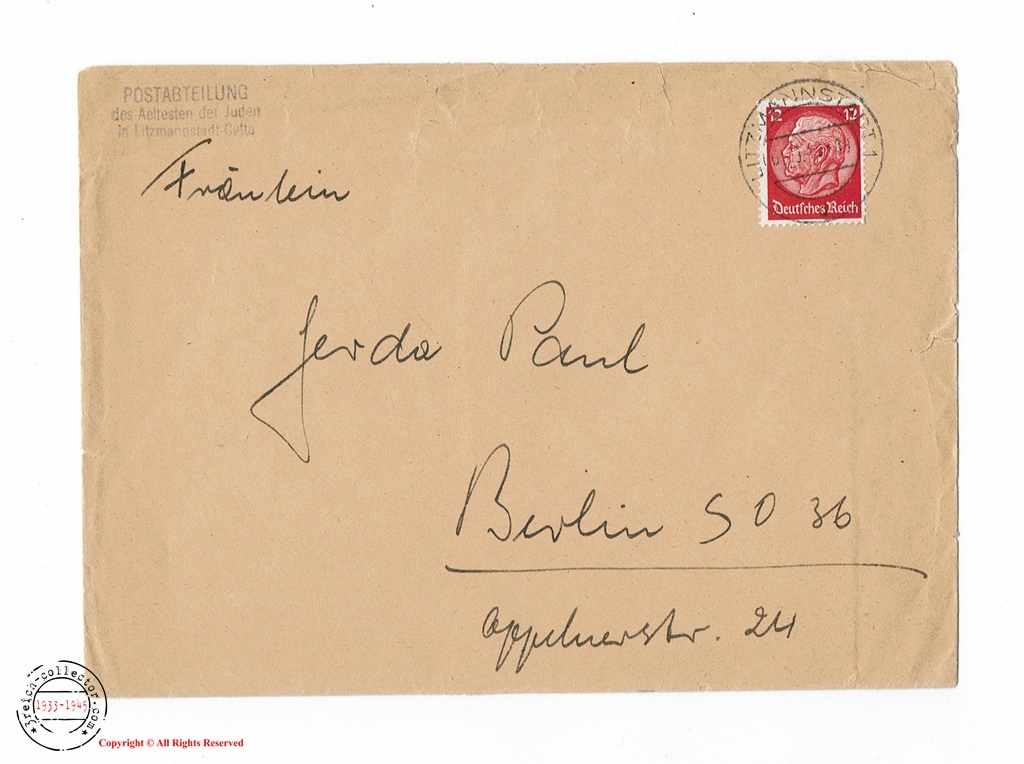 POSTABTEILUNG
des Aeltesten der Juden
in Litzmannstadt-Getto
LITZMANNSTADT 1
12 12
Deutsches Reich
Fräulein
Gerda Paul
Berlin SO 36
Oppelnerstr. 24
3reich-collector.com
1933-1945
Copyright © All Rights Reserved